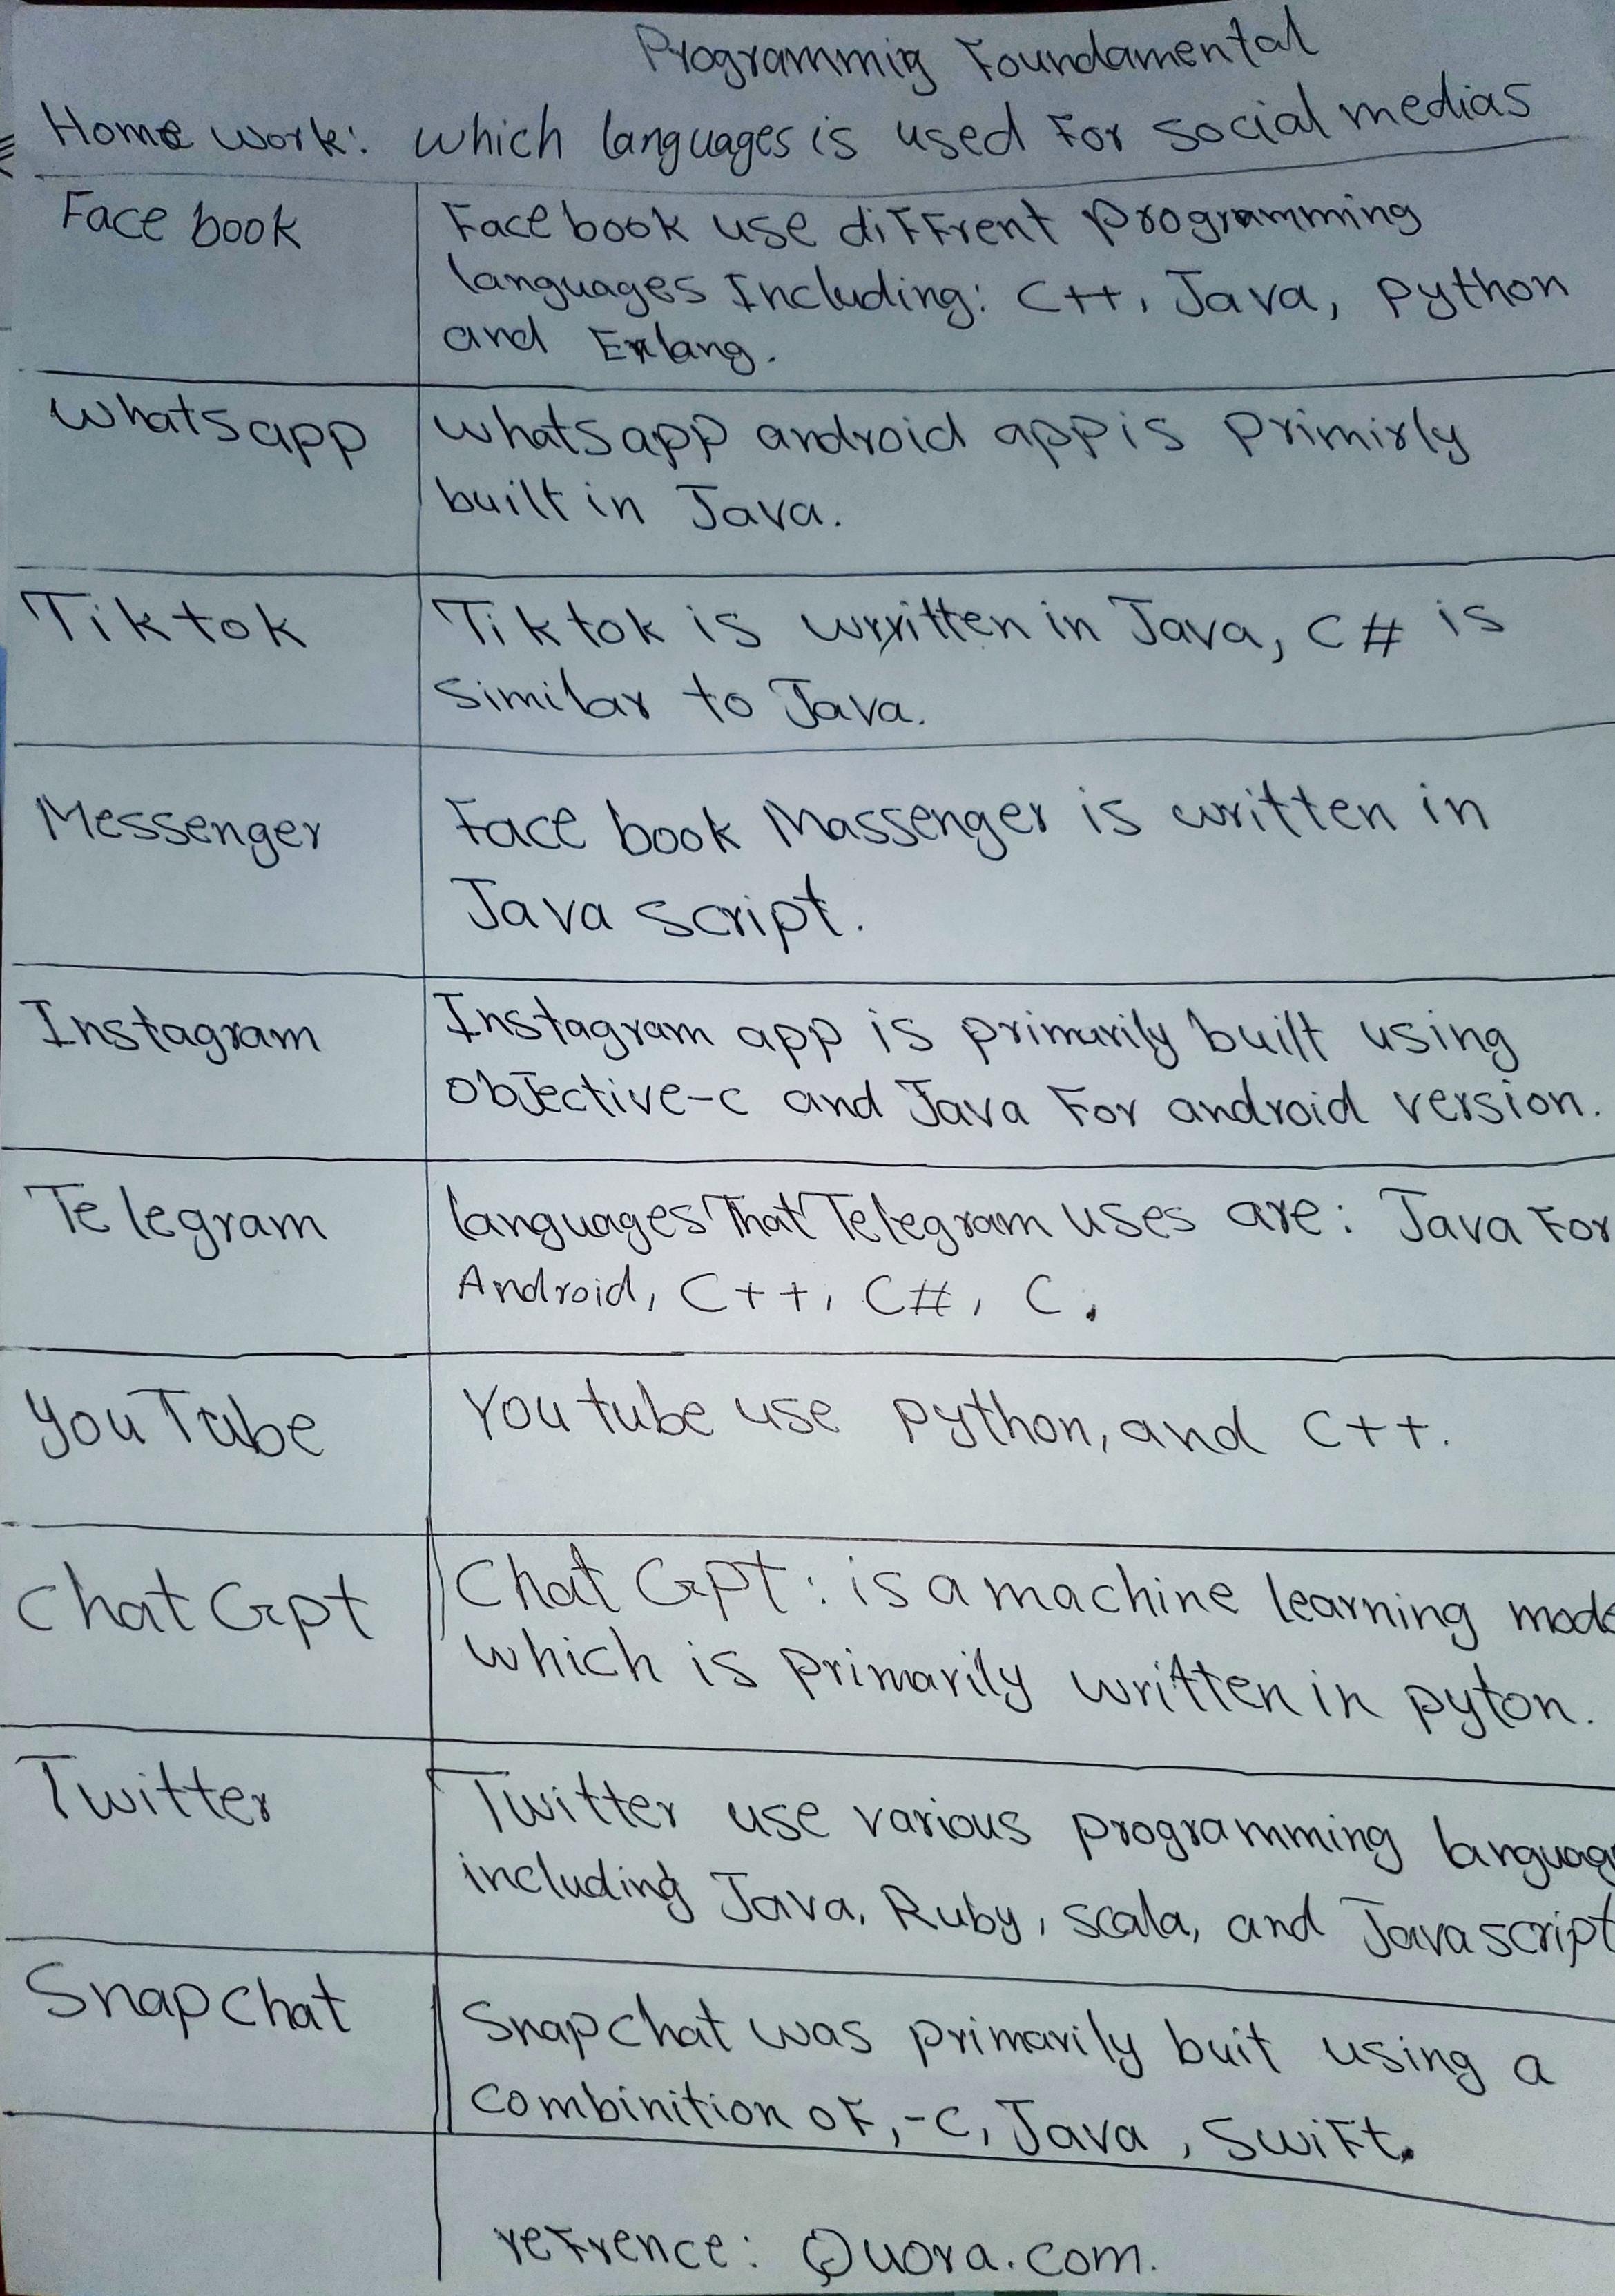 Programmig Foundamental
Home work: which languages is used For social medias
Face book
Facebook use diffrent programming
languages Including: C++, Java, python
and Erlang.
Whatsapp
Whatsapp android app is primirly
built in Java.
Tiktok
Tiktok is written in Java, C# is
similar to Java.
Messenger
Face book Massenger is written in
Java script.
Instagram
Instagram app is primarily built using
objective-c and Java For android version.
Telegram
languages That Telegram uses are: Java For
Android, C++, C#, C.
YouTube
You tube use python, and C++.
Chat Gpt
Chat GPT: is a machine learning mode
which is primarily written in pyton.
Twitter
Twitter use various programming languag
including Java, Ruby, scala, and Javascript
Snapchat
Snapchat was primarily buit using a
combinition of,-C, Java, Swift.
refrence: Quora.com.